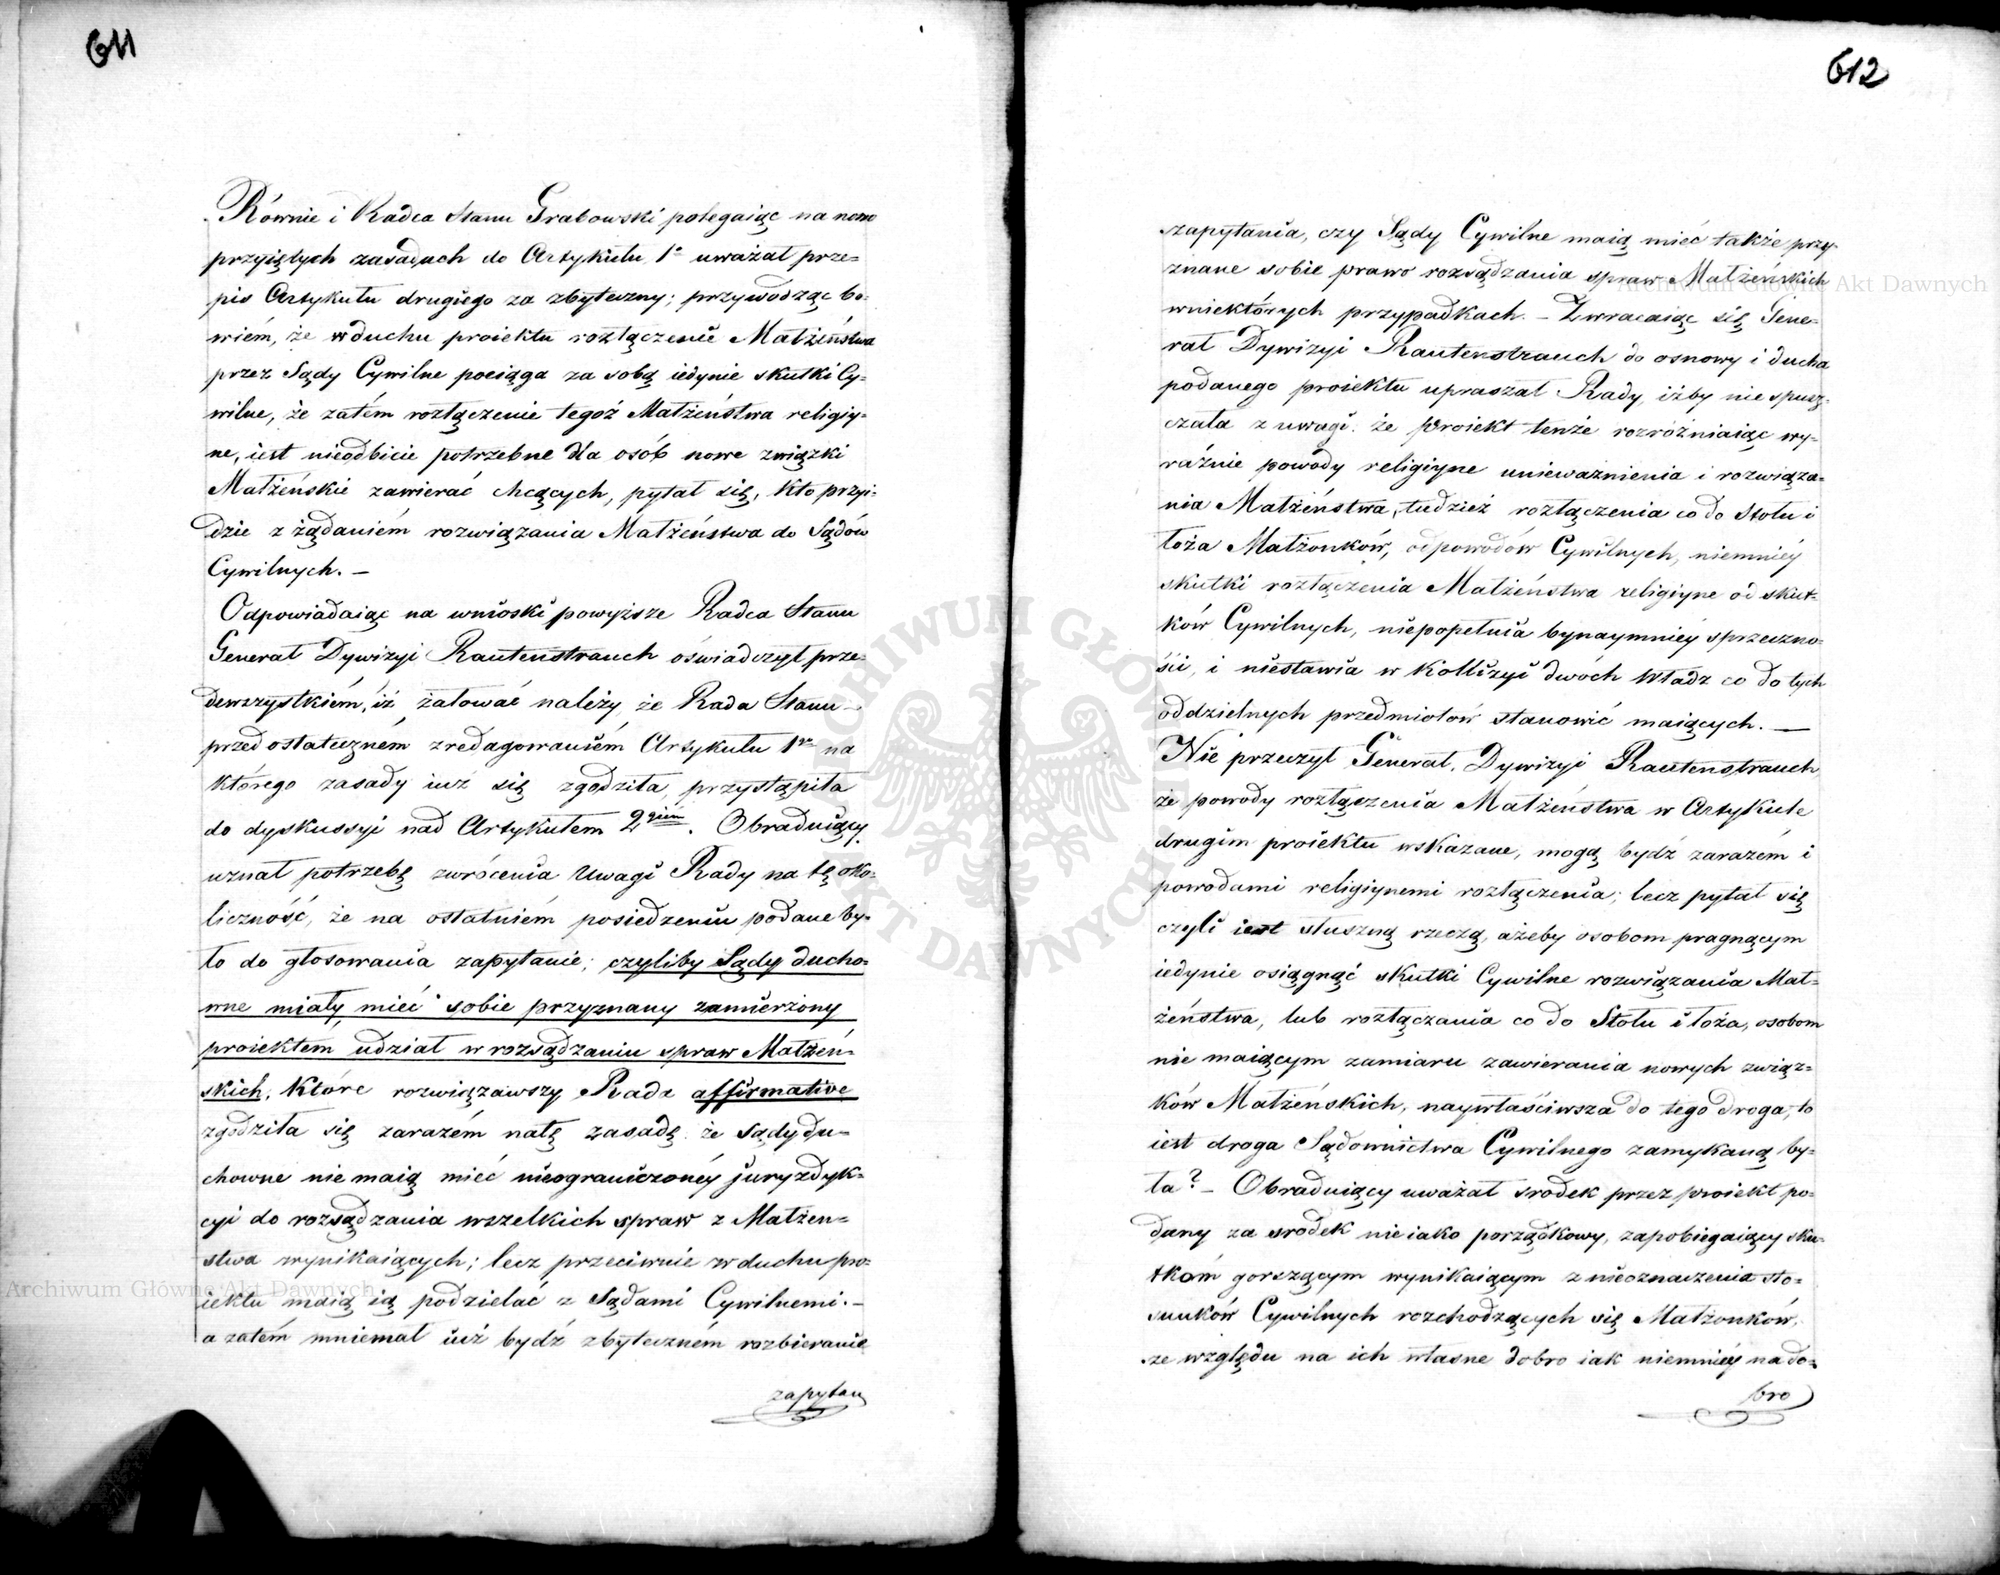 611
Równie i Radca Stanu Grabowski polegaiąc na nowo
przyiętych zasadach do Artykułu 1o uważał prze=
pis Artykułu drugiego za zbyteczny; przywodząc bo=
wiém, że w duchu proiektu rozłączenie Małżeństwa
przez Sądy Cywilne pociąga za sobą iedynie skutki Cy=
wilne, że zatém rozłączenie tegoż Małżeństwa religiy=
ne, iest nieodbicie potrzebne dla osób nowe związki
Małżeńskie zawierać chcących, pytał się, kto przyi=
dzie z żądaniém rozwiązania Małżeństwa do Sądów
Cywilnych. —
Odpowiadaiąc na wnioski powyższe Radca Stanu
Generał Dywizyi Rautenstrauch oświadczył prze=
dewszystkiém, iż żałować należy że Rada Stanu
przed ostateczném zredagowaniém Artykułu 1go na
którego zasady iuż się zgodziła, przystąpiła
do dyskussyi nad Artykułem 2gim. Obraduiący
uznał potrzebę zwrócenia uwagi Rady na tę oko=
liczność, że na ostatniém posiedzeniu podane by=
ło do głosowania zapytanie; czyliby Sądy ducho=
wne miały mieć sobie przyznany zamierzony
proiektem udział w rozsądzaniu spraw Małżeń=
skich, które rozwiązawszy Rada affirmative
zgodziła się zarazém na tę zasadę że Sądy du=
chowne nie maią mieć nieograniczonéy juryzdyk=
cyi do rozsądzania wszelkich spraw z Małżeń=
stwa wynikaiących; lecz przeciwnie w duchu pro=
iektu maią ią podzielać z Sądami Cywilnemi. —
a zatém mniemał iuż bydź zbyteczném rozbieranie
zapytan
612
zapytania, czy Sądy Cywilne maią mieć także przy=
znane sobie prawo rozsądzania spraw Małżeńskich
w niektórych przypadkach. — Zwracaiąc się Gene=
rał Dywizyi Rautenstrauch do osnowy i ducha
podanego proiektu upraszał Rady, iżby nie spusz=
czała z uwagi: że proiekt tenże rozróżniaiąc wy=
raźnie powody religiyne unieważnienia i rozwiąza=
nia Małżeństwa, tudzież rozłączenia co do stołu i
łoża Małżonków, od powodów Cywilnych, niemniéy
skutki rozłączenia Małżeństwa religiyne od skut=
ków Cywilnych, niepopełnia bynaymniéy sprzeczno=
ści, i niestawia w kollizyi dwóch Władz co do tych
oddzielnych przedmiotów stanowić maiących. —
Nie przeczył Generał Dywizyi Rautenstrauch
że powody rozłączenia Małżeństwa w Artykule
drugim proiektu wskazane, mogą bydź zarazém i
powodami religiynemi rozłączenia; lecz pytał się
czyli iest słuszną rzeczą, ażeby osobom pragnącym
iedynie osiągnąć skutki Cywilne rozwiązania Mał=
żeństwa, lub rozłączania co do Stołu i łoża, osobom
nie maiącym zamiaru zawierania nowych związ=
ków Małżeńskich, naywłaściwsza do tego droga, to
iest droga Sądownictwa Cywilnego zamykaną by=
ła? — Obraduiący uważał srodek przez proiekt po=
dany za srodek nieiako porządkowy, zapobiegaiący sku=
tkom gorszącym wynikaiącym z nieoznaczenia sto=
sunków Cywilnych rozchodzących się Małżonków,
ze względu na ich własne dobro iak niemniéy na do=
bro
Archiwum Główne Akt Dawnych
Archiwum Główne Akt Dawnych
ARCHIWUM GŁÓWNE AKT DAWNYCH